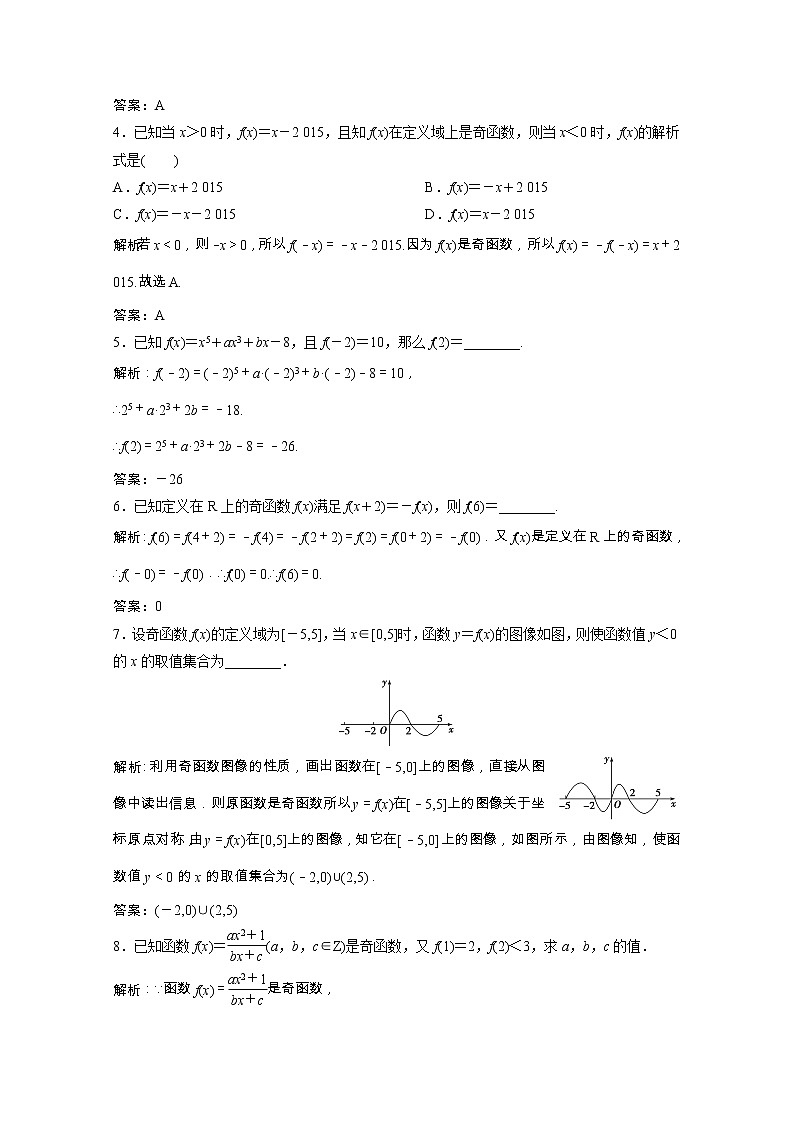 答案：A
4．已知当 x＞0 时，f(x)＝x－2 015，且知 f(x)在定义域上是奇函数，则当 x＜0 时，f(x)的解析
式是(　　)
A．f(x)＝x＋2 015　　B．f(x)＝－x＋2 015
C．f(x)＝－x－2 015　　D．f(x)＝x－2 015
解析：若 x＜0，则－x＞0，所以 f(－x)＝－x－2 015.因为 f(x)是奇函数，所以 f(x)＝－f(－x)＝x＋2
015.故选 A.
答案：A
5．已知 f(x)＝x⁵＋ax³＋bx－8，且 f(－2)＝10，那么 f(2)＝________.
解析：f(－2)＝(－2)⁵＋a·(－2)³＋b·(－2)－8＝10，
∴2⁵＋a·2³＋2b＝－18.
∴f(2)＝2⁵＋a·2³＋2b－8＝－26.
答案：－26
6．已知定义在 R 上的奇函数 f(x)满足 f(x＋2)＝－f(x)，则 f(6)＝________.
解析：f(6)＝f(4＋2)＝－f(4)＝－f(2＋2)＝f(2)＝f(0＋2)＝－f(0)．又 f(x)是定义在 R 上的奇函数，
∴f(－0)＝－f(0)．∴f(0)＝0.∴f(6)＝0.
答案：0
7．设奇函数 f(x)的定义域为[－5,5]，当 x∈[0,5]时，函数 y＝f(x)的图像如图，则使函数值 y＜0
的 x 的取值集合为________．
y
5
－5 －2 O 2 x
解析：利用奇函数图像的性质，画出函数在[－5,0]上的图像，直接从图
像中读出信息．则原函数是奇函数所以 y＝f(x)在[－5,5]上的图像关于坐
y
2 5
－5 －2 O x
标原点对称 由 y＝f(x)在[0,5]上的图像，知它在[－5,0]上的图像，如图所示，由图像知，使函
数值 y＜0 的 x 的取值集合为(－2,0)∪(2,5)．
答案：(－2,0)∪(2,5)
8．已知函数 f(x)＝(ax²＋1)/(bx＋c)(a，b，c∈Z)是奇函数，又 f(1)＝2，f(2)＜3，求 a，b，c 的值．
解析：∵函数 f(x)＝(ax²＋1)/(bx＋c)是奇函数，